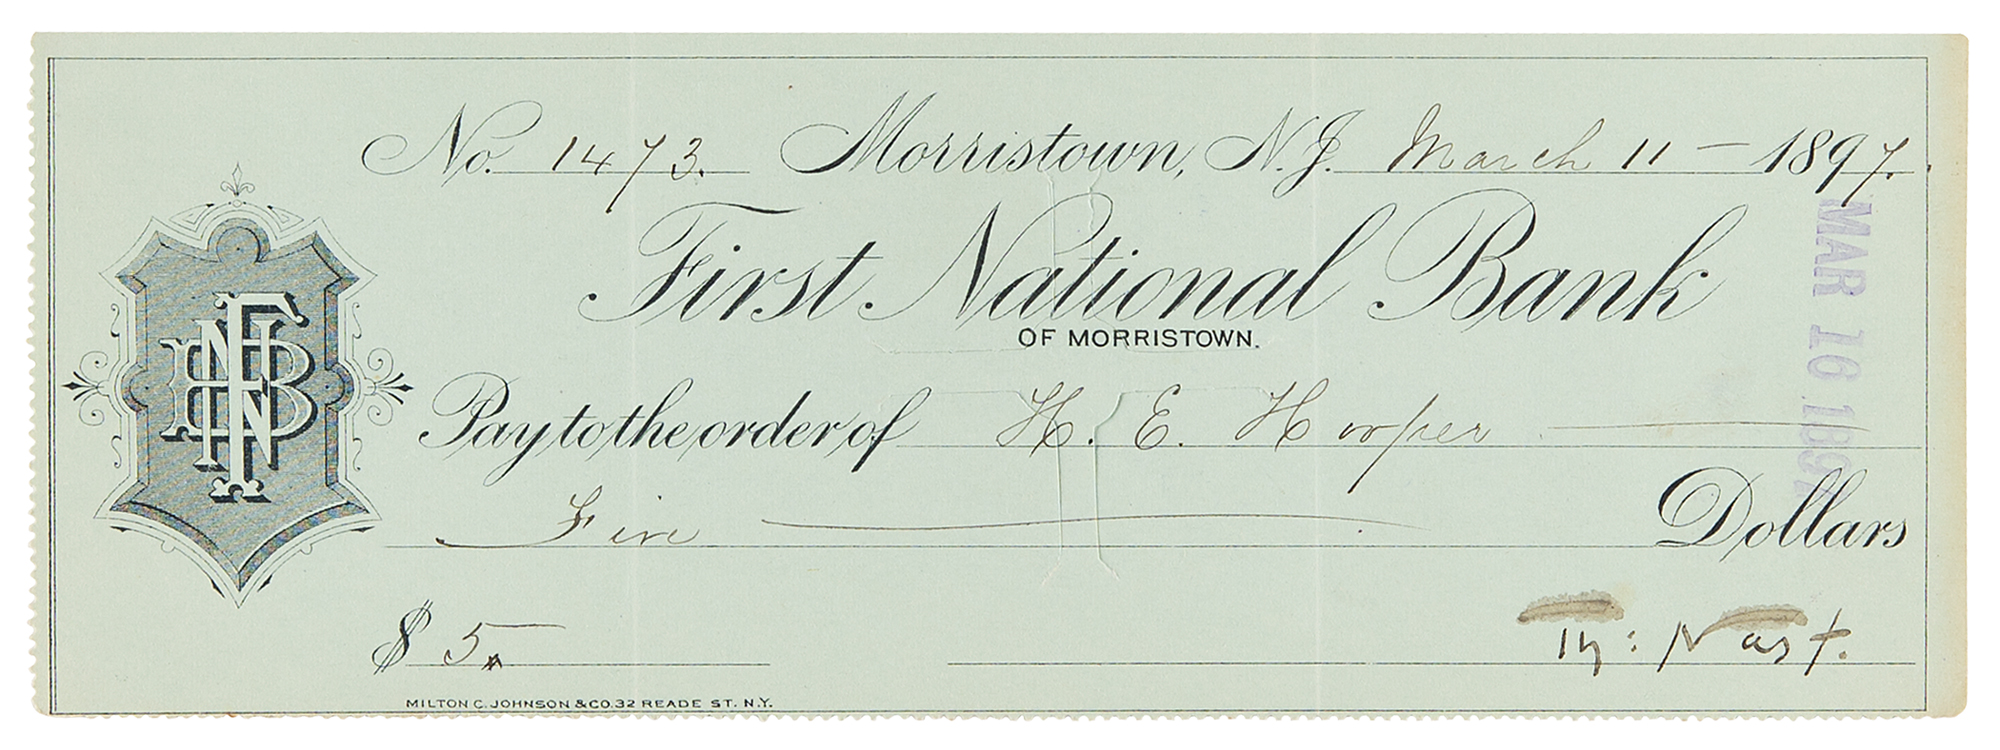 No. 1473. Morristown, N.J. March 11 — 1897.
First National Bank
OF MORRISTOWN.
Pay to the order of H. E. Hooper
Five Dollars
$ 5.
Th: Nast.
MILTON C. JOHNSON & CO. 32 READE ST. N.Y.
MAR 16 1897
FNB